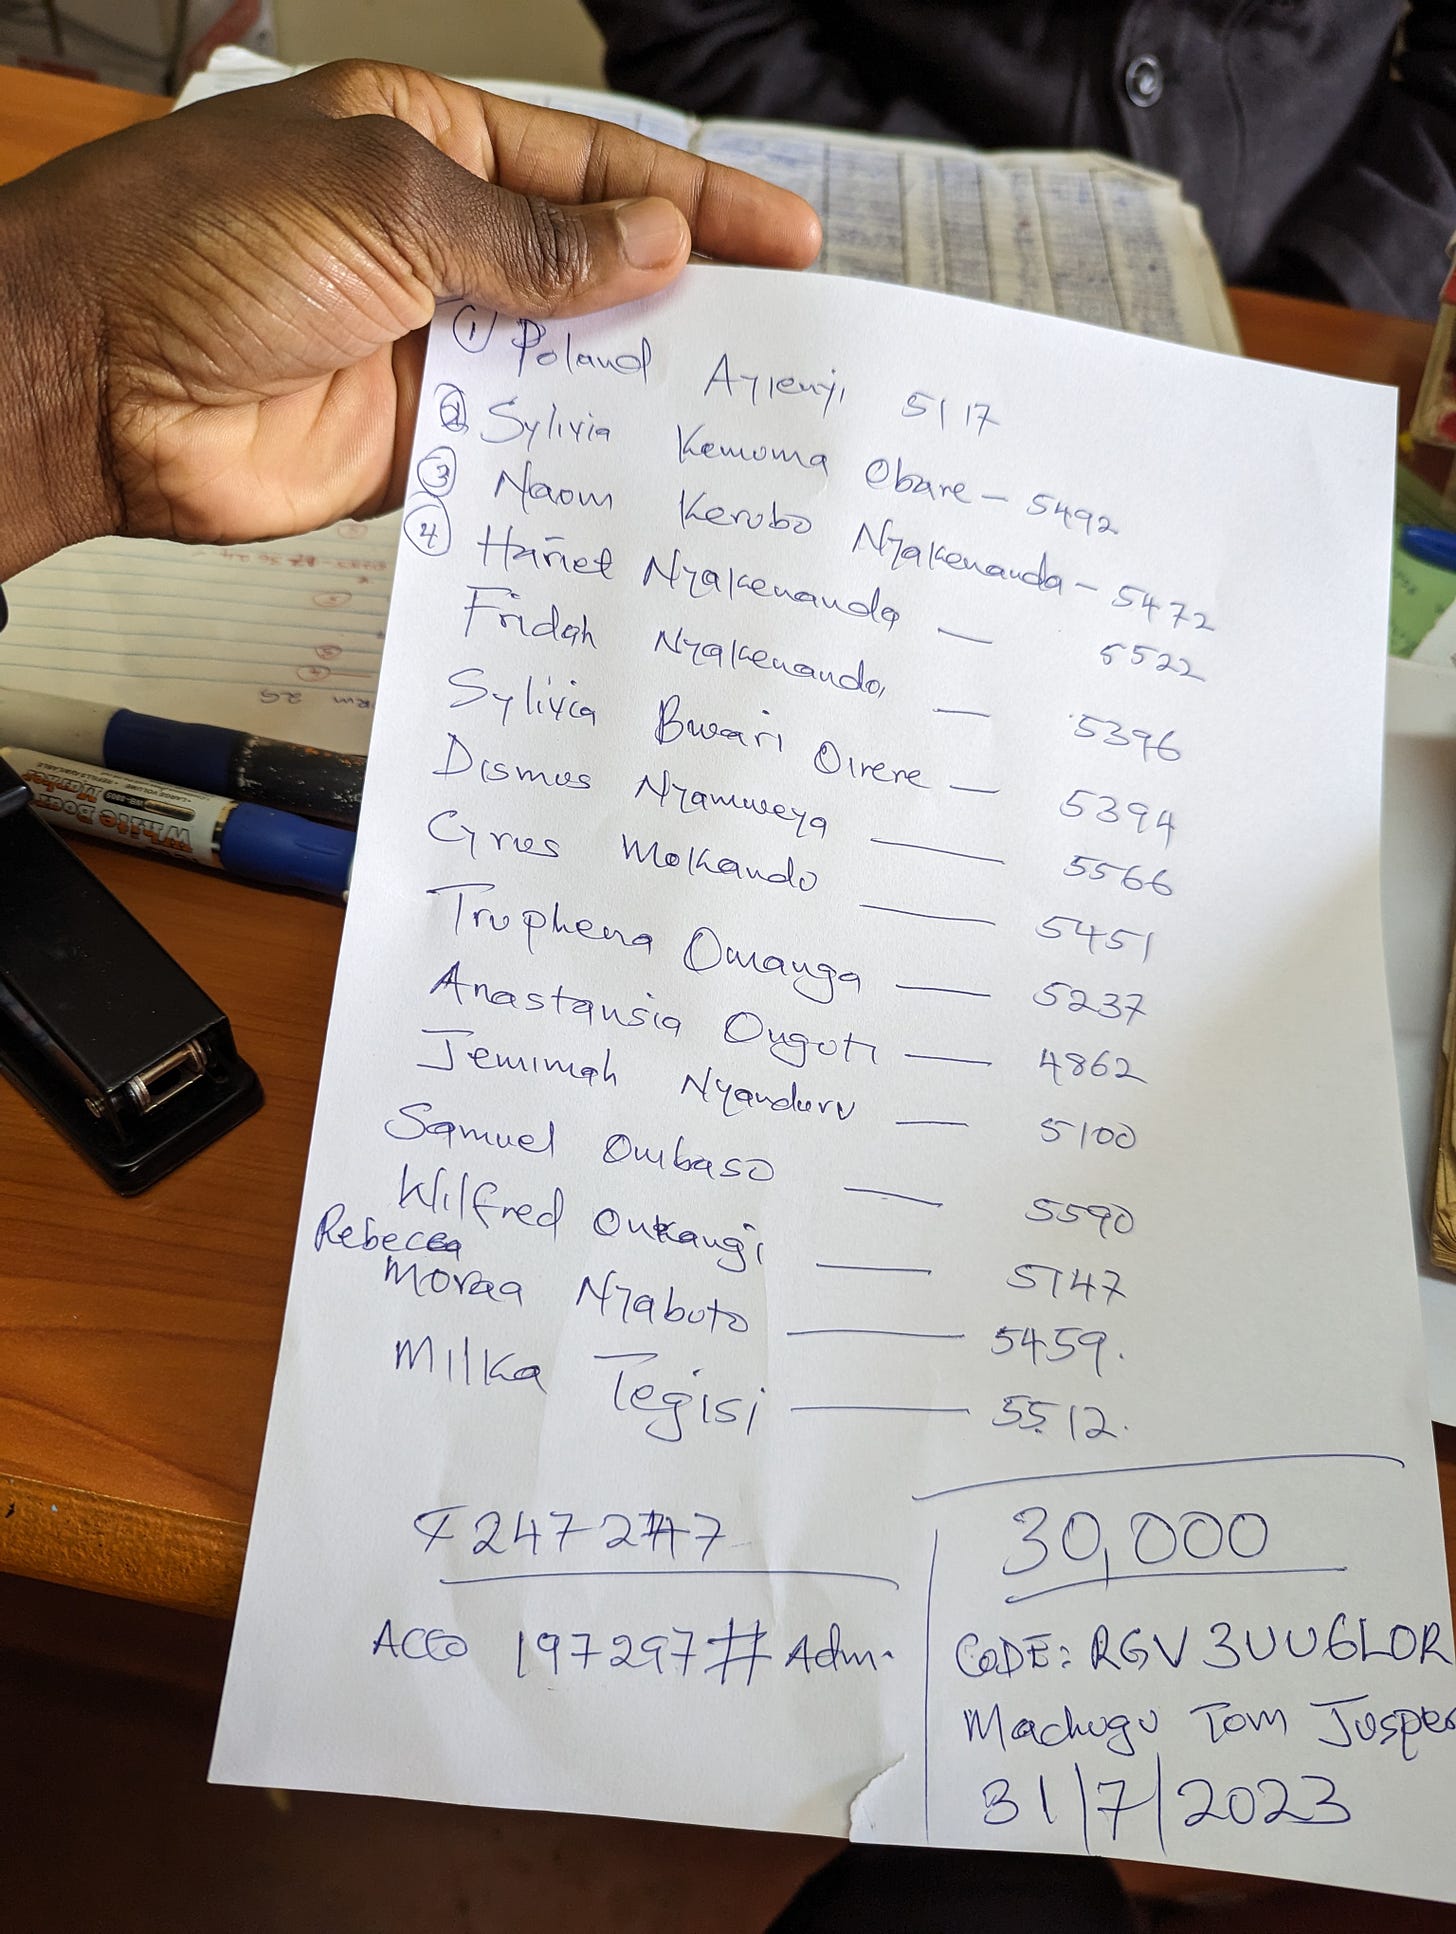 ① Poland Ayienji 5117
② Sylivia Kemoma Obare – 5492
③ Naom Kerubo Nyakenanda – 5472
④ Harriet Nyakenanda — 5522
Fridah Nyakenando, — 5396
Sylivia Bwari Oirere — 5394
Dismus Nyamweya — 5566
Cyrus Mokando — 5451
Truphena Omanga — 5237
Anastansia Ongoti — 4862
Jemimah Nyanduru — 5100
Samuel Ombaso — 5590
Wilfred Onkangi — 5147
Rebecca
Moraa Nyaboto — 5459.
Milka Tegisi — 5512.
30,000
ACCO 197297# Adm.
CODE: RGV3UU6LOR
Machogu Tom Jusper
31/7/2023
White Board
Marker